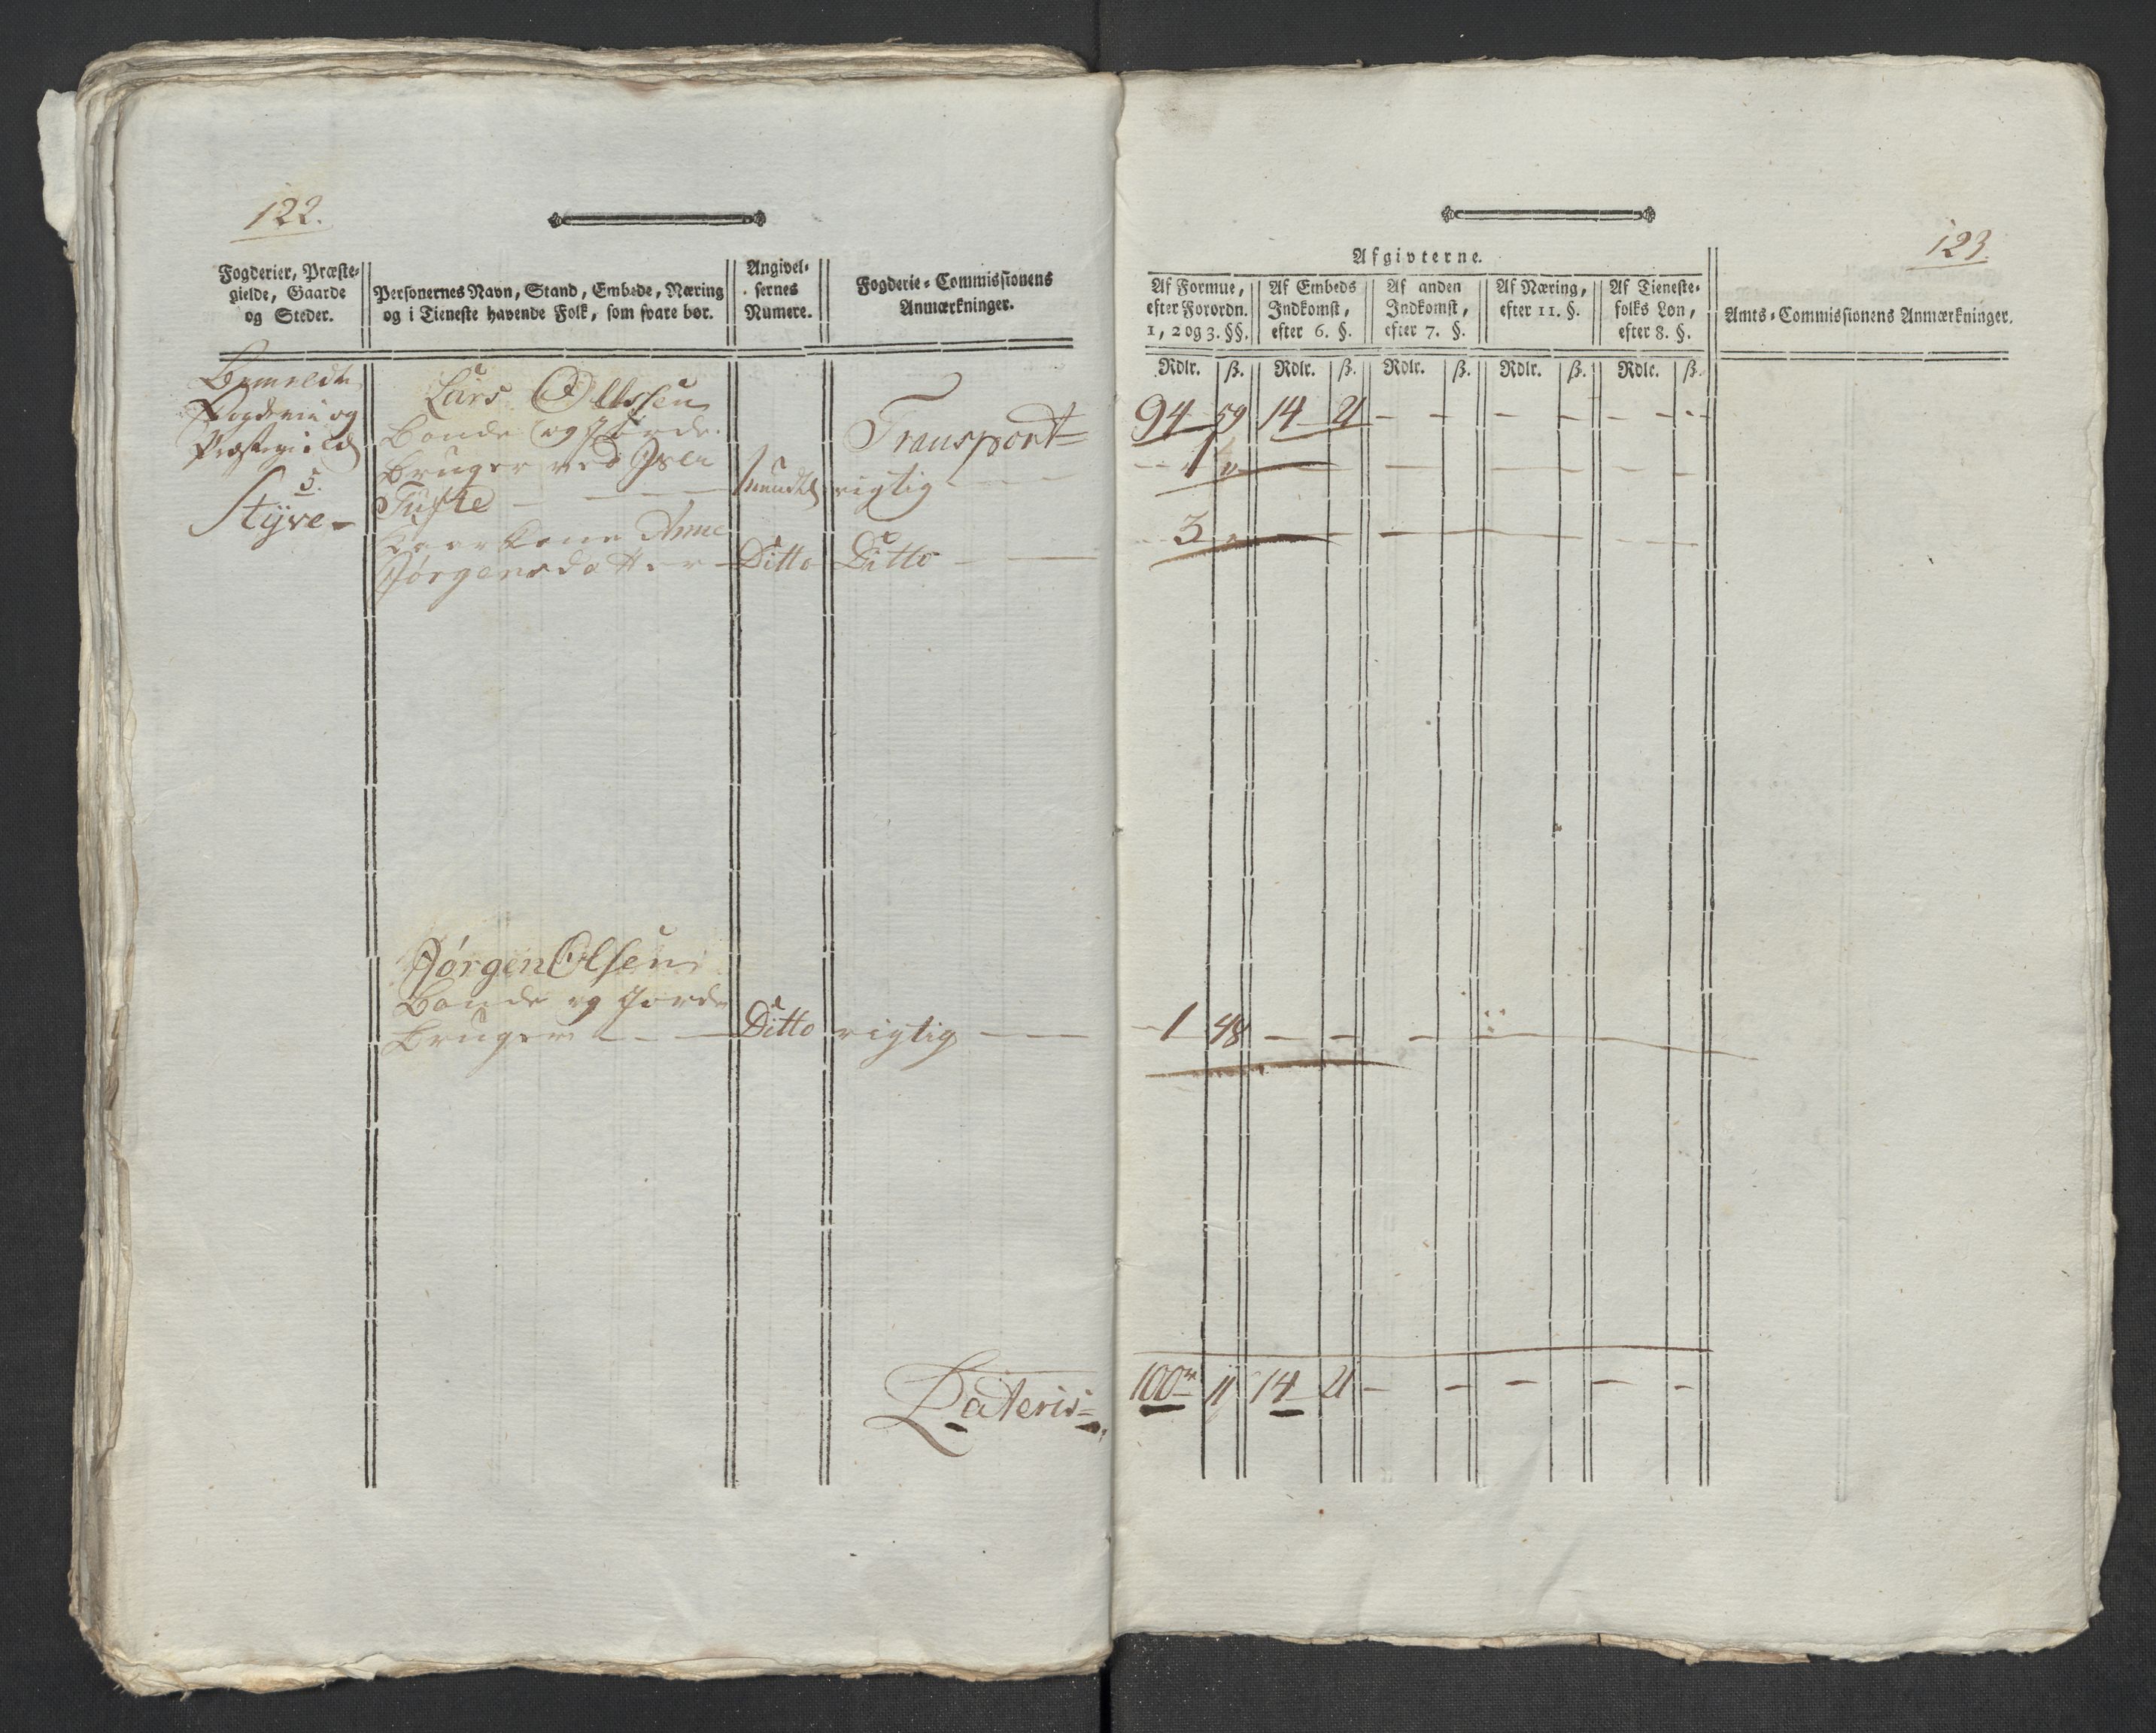 122.
Fogderier, Præste-
gielde, Gaarde
og Steder.
Personernes Navn, Stand, Embede, Næring
og i Tieneste havende Folk, som svare bør.
Angivel-
sernes
Numere.
Fogderie-Commissionens
Anmærkninger.
Bemeldte
Fogderie og
Præstegield
5.
Styve
Lars Olssen
Bonde og Jorde
Bruger ved
Tufte
Anne
Jørgensdatter
mundtl
Ditto
Transport
rigtig
Ditto
Jørgen Olsen
Bonde og Jorde
Bruger
Ditto
rigtig
Lateris
123.
Afgivterne.
Af Formue,
efter Forordn.
1, 2 og 3. §§.
Af Embeds
Indkomst,
efter 6. §.
Af anden
Indkomst,
efter 7. §.
Af Næring,
efter 11. §.
Af Tieneste-
folks Løn,
efter 8. §.
Amts-Commissionens Anmærkninger.
Rdlr. ß. Rdlr. ß. Rdlr. ß. Rdlr. ß. Rdlr. ß.
94 59 14 21 - - - - - -
1 "
3 "
1 48 - - -
100 11 14 21 - - - - -